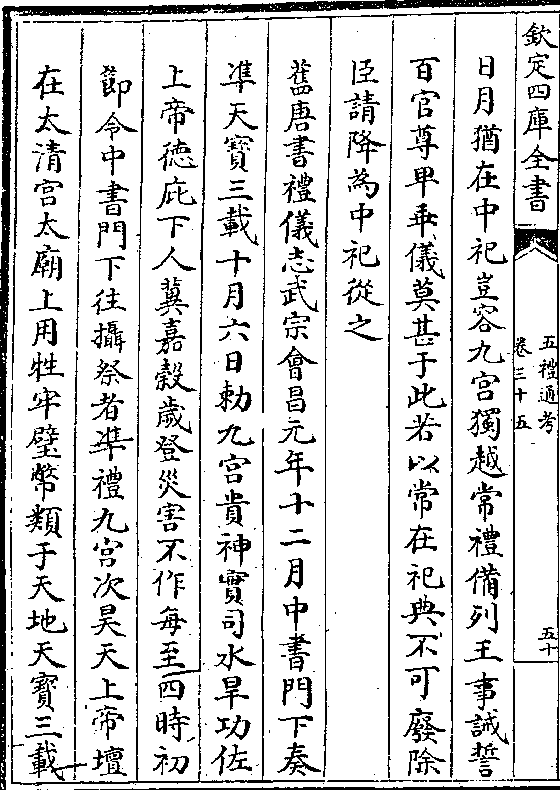 欽定四庫全書
五禮通考
卷三十五
五十
日月猶在中祀豈容九宫獨越常禮備列王事誡誓
百官尊卑乖儀莫甚于此若以常在祀典不可廢除
臣請降為中祀從之
舊唐書禮儀志武宗會昌元年十二月中書門下奏
準天寶三載十月六日勅九宫貴神實司水旱功佐
上帝德庇下人冀嘉穀歲登災害不作每至四時初
節令中書門下往攝祭者準禮九宫次昊天上帝壇
在太清宫太廟上用牲牢璧幣類于天地天寶三載